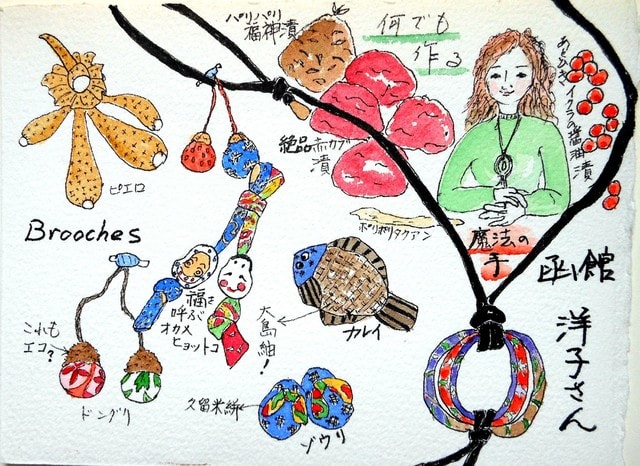 パリパリ
福神漬
何でも
作る
あとひき
イクラの醤油漬
絶品赤カブ
漬
ピエロ
ポリポリタクアン
魔法の
手
函館
洋子さん
Brooches
福を
呼ぶ
オカメ
ヒョットコ
大島紬!
カレイ
これも
エコ?
ドングリ
久留米絣
ゾウリ